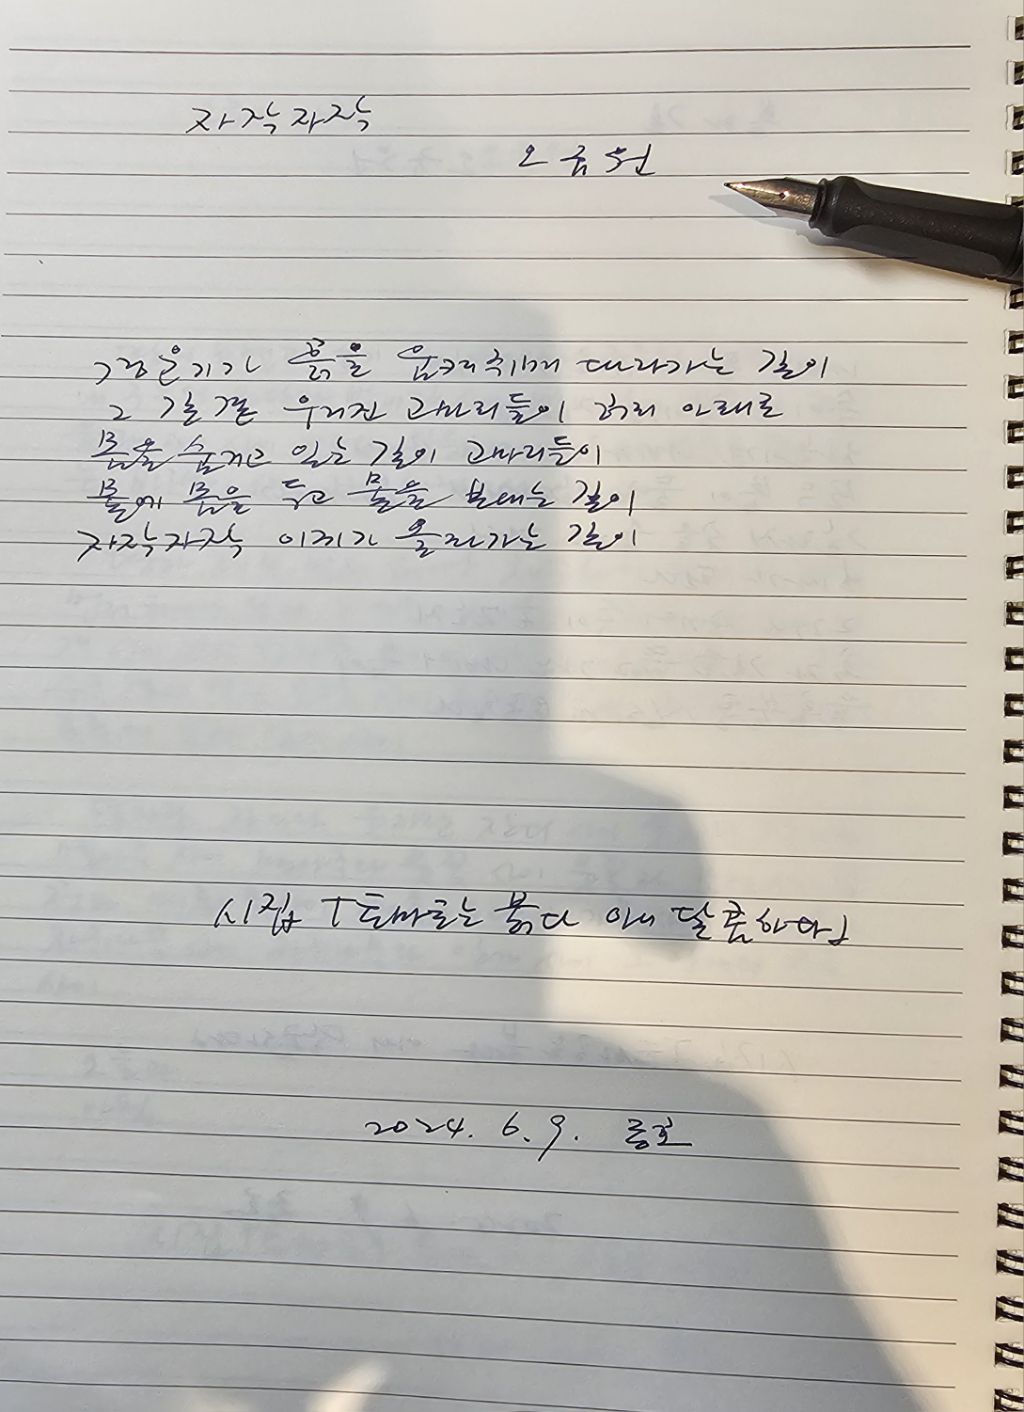 자작자작
오규원
경운기가 흙을 움켜쥐며 따라가는 길이
그 길 곁 우거진 고마리들이 허리 아래로
몸을 숨기고 있는 길이 고마리들이
물에 몸을 두고 물을 보내는 길이
자작자작 이끼가 올라가는 길이
시집 「토마토는 붉다 아니 달콤하다」
2024. 6. 9.